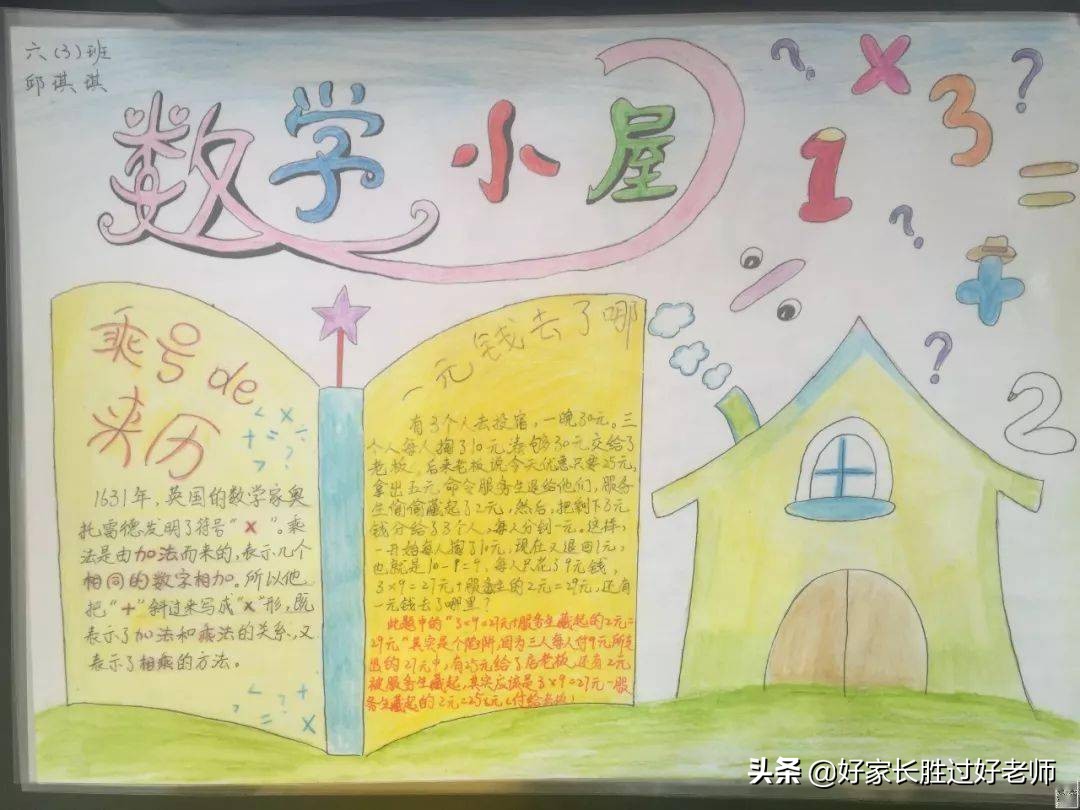 六(3)班
邱琪琪
数学小屋
乘号de
来历
1631年,英国的数学家奥
托雷德发明了符号“×”。乘
法是由加法而来的,表示几个
相同的数字相加。所以他
把“+”斜过来写成“×”形,既
表示了加法和乘法的关系,又
表示了相乘的方法。
一元钱去了哪
有3个人去投宿,一晚30元。三
个人每人掏了10元,凑够30元交给了
老板,后来老板说今天优惠只要25元,
拿出五元,命令服务生退给他们,服务
生偷偷藏起了2元,然后,把剩下3元
钱分给了3个人,每人分到一元。这样,
一开始每人掏了10元,现在又退回1元,
也就是10-9=9,每人只花了9元钱,
3×9=27元+服务生的2元=29元,还有
一元钱去了哪里?
此题中的“3×9=27元+服务生藏起的2元=
29元”其实是个陷阱,因为三人每人付9元所支
出的27元中,有25元给了店老板,还有2元
被服务生藏起,其实应该是3×9=27元-服
务生藏起的2元=25元(付给老板)
? × 3 ? 1 = ? % + ? 2
< × ÷
+ = ?
> ?
< +
? = ×
头条 @好家长胜过好老师